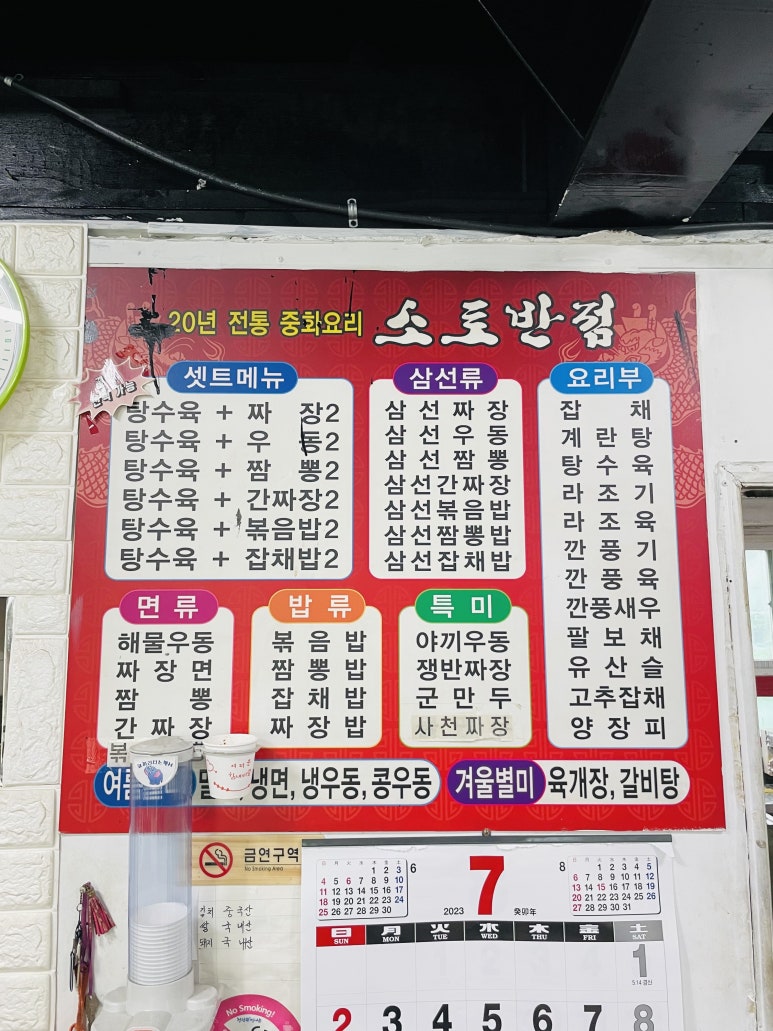 20년 전통 중화요리 소토반점
셋트메뉴
탕수육 + 짜 장2
탕수육 + 우 동2
탕수육 + 짬 뽕2
탕수육 + 간짜장2
탕수육 + 볶음밥2
탕수육 + 잡채밥2
삼선류
삼 선 짜 장
삼 선 우 동
삼 선 짬 뽕
삼선간짜장
삼선볶음밥
삼선짬뽕밥
삼선잡채밥
요리부
잡 채
계 란 탕
탕 수 육
라 조 기
라 조 육
깐 풍 기
깐 풍 육
깐풍새우
팔 보 채
유 산 슬
고추잡채
양 장 피
면 류
해물우동
짜 장 면
짬 뽕
간 짜 장
볶
밥 류
볶 음 밥
짬 뽕 밥
잡 채 밥
짜 장 밥
특 미
야끼우동
쟁반짜장
군 만 두
사천짜장
냉면, 냉우동, 콩우동
겨울별미 육개장, 갈비탕
금연구역
No Smoking Area
중국산
쌀 국내산
돼지 국내산
No Smoking!
6
日 月 火 水 木 金 土
1 2 3
4 5 6 7 8 9 10
11 12 13 14 15 16 17
18 19 20 21 22 23 24
25 26 27 28 29 30
2023 7 癸卯年
8
日 月 火 水 木 金 土
1 2 3 4 5
6 7 8 9 10 11 12
13 14 15 16 17 18 19
20 21 22 23 24 25 26
27 28 29 30 31
日 月 火 水 木 金 土
SUN MON TUE WED THU FRI SAT
1
5.14
2 3 4 5 6 7 8